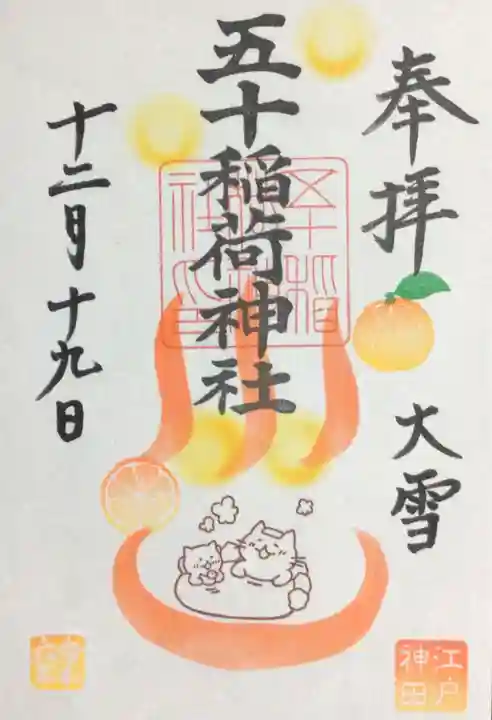 奉拝
大雪
五十稲荷神社
十二月十九日
江戸
神田